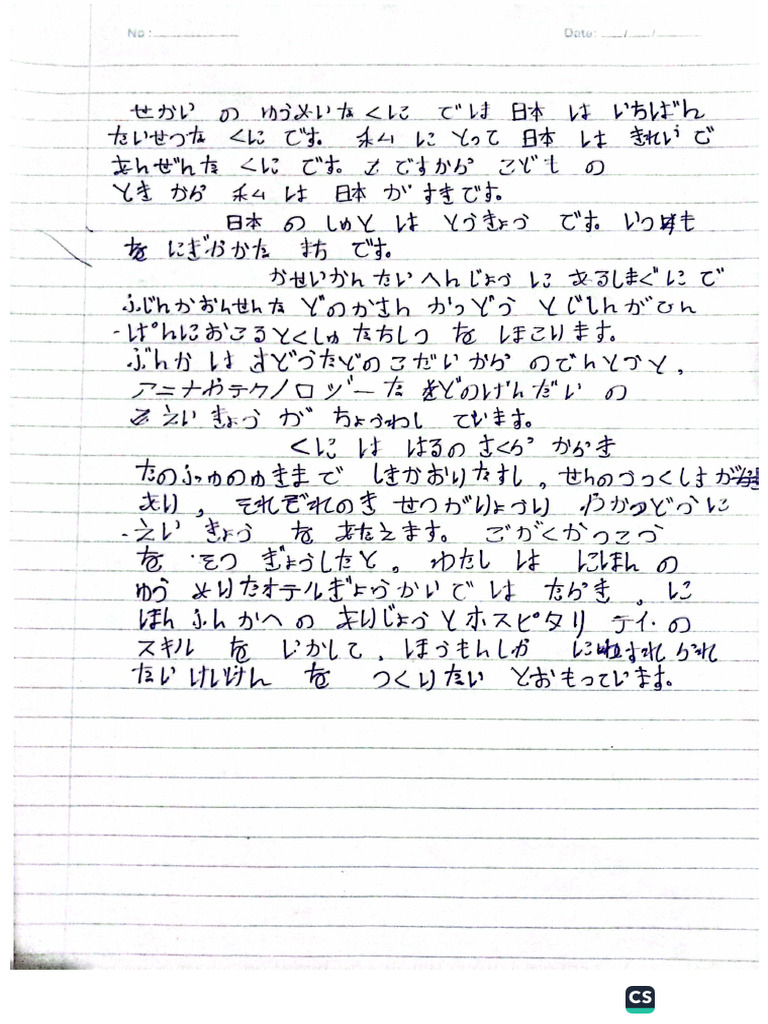 No :
Date: / /
せかい の ゆうめいな くに では 日本 は いちばん
たいせつな くに です。 私 に とって 日本 は きれいで
あんぜんな くに です。 ですから こども の
とき から 私 は 日本 が すきです。
日本 の しゅと は とうきょう です。 いつも
にぎやかな まち です。
かせいかん たいへんじょう に あるしまぐに で
ふじんかおんせんな どのかさん かつどう とじしんがひん
ぱんにおこるとくしゅ たちしつ を ほこります。
ぶんか は さどうなどのこだいから のでんとうと,
アニナやテクノロジーな どのげんだい の
えいきょう が ちょうわし ています。
くに は はるの さくら からき
たのふゆのゆきまで しきかおりなすし, せんのづっくしまが
あり, それぞれのき せつがりょうり やかつどうに
えい きょう を あたえます。 ごがくかっこう
を そつ ぎょうしたと。 わたし は にほん の
ゆう めいなオテルぎょうかいで は たらき 。 に
ほん ふんかへの あいじょう とホスピタリ ティ の
スキル を いかして, ほうもんしゃ に わすれ られ
ない けいけん を つくりたい とおもっています。
CS